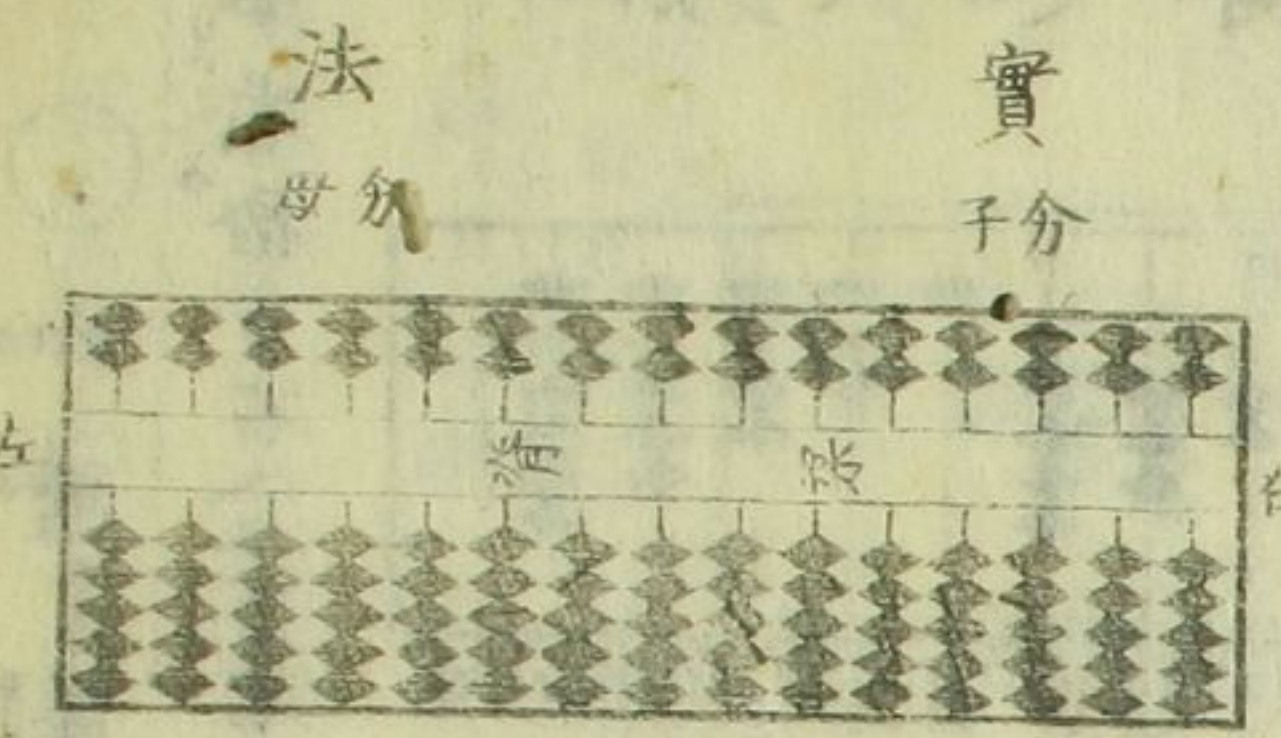 實
分子
法
分母